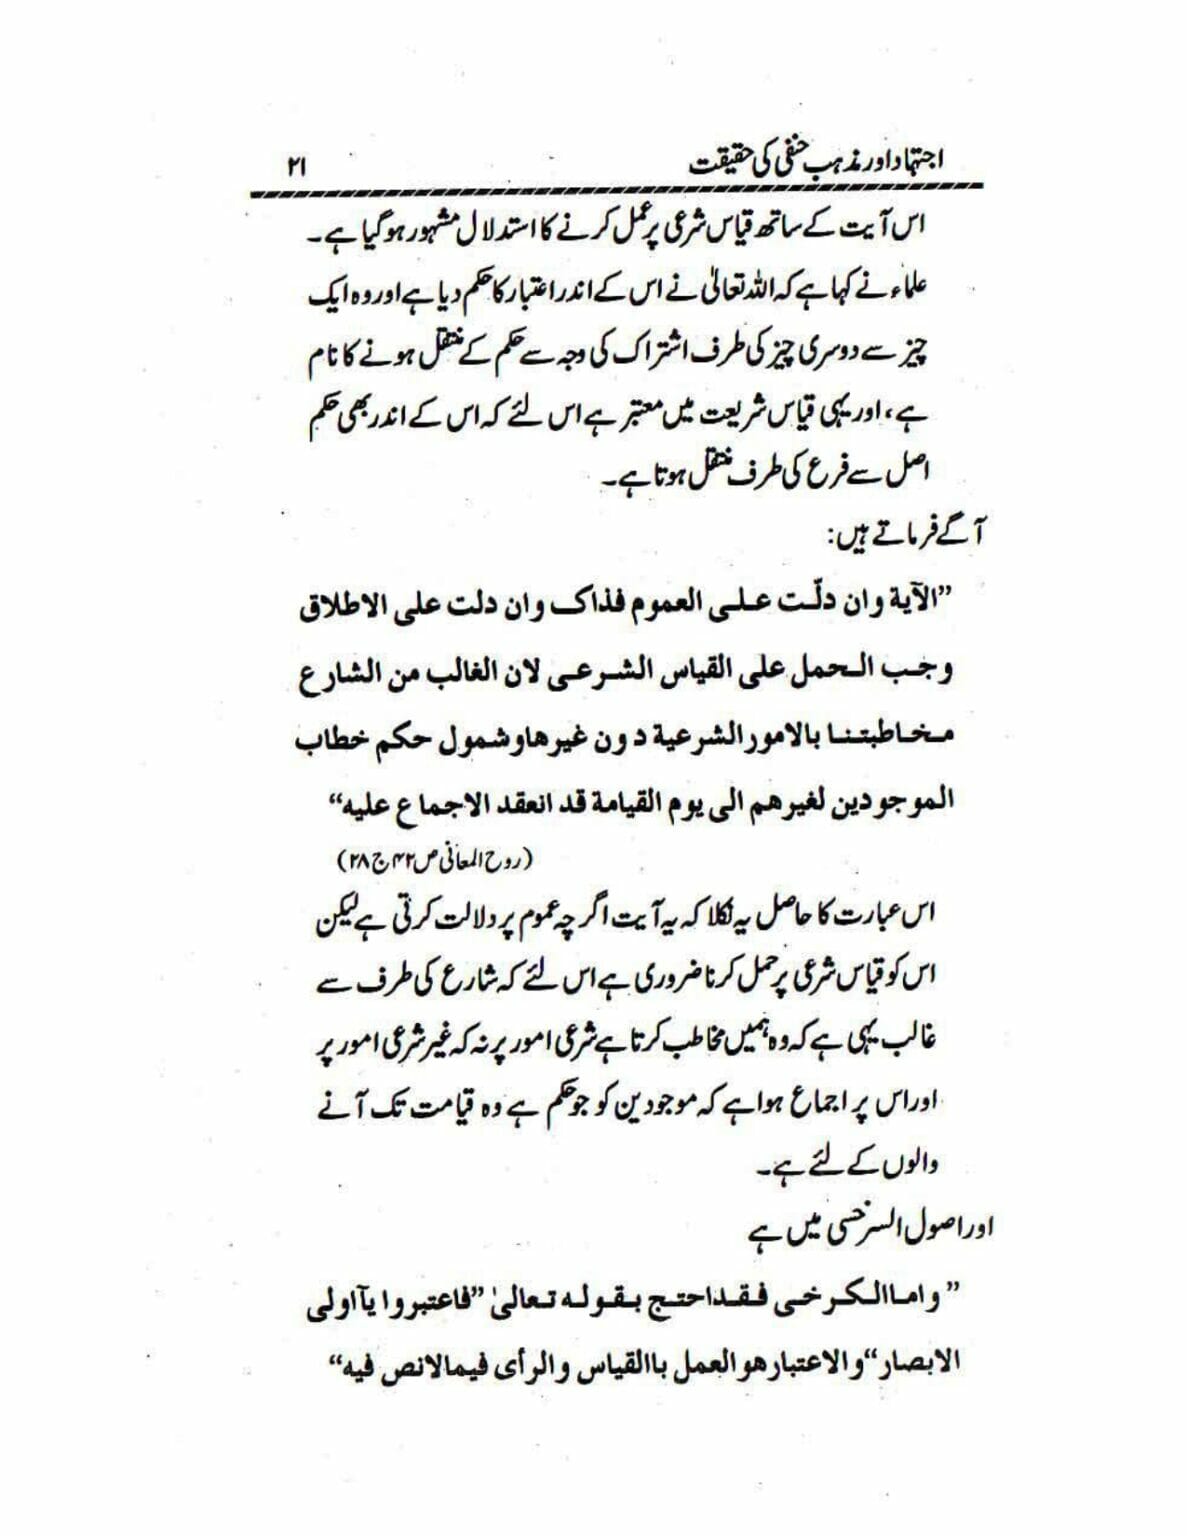 اجتہاد اور مذہب حنفی کی حقیقت ۲۱
اس آیت کے ساتھ قیاس شرعی پر عمل کرنے کا استدلال مشہور ہو گیا ہے۔
علماء نے کہا ہے کہ اللہ تعالیٰ نے اس کے اندر اعتبار کا حکم دیا ہے اور وہ ایک
چیز سے دوسری چیز کی طرف اشتراک کی وجہ سے حکم کے منتقل ہونے کا نام
ہے، اور یہی قیاس شریعت میں معتبر ہے اس لئے کہ اس کے اندر بھی حکم
اصل سے فرع کی طرف منتقل ہوتا ہے۔
آگے فرماتے ہیں:
”الآية وان دلّت على العموم فذاك وان دلت على الاطلاق
وجب الحمل على القياس الشرعى لان الغالب من الشارع
مخاطبتنا بالامور الشرعية دون غيرها وشمول حكم خطاب
الموجودين لغيرهم الى يوم القيامة قد انعقد الاجماع عليه“
(روح المعانی ص ۴۲ ج ۲۸)
اس عبارت کا حاصل یہ نکلا کہ یہ آیت اگر چہ عموم پر دلالت کرتی ہے لیکن
اس کو قیاس شرعی پر حمل کرنا ضروری ہے اس لئے کہ شارع کی طرف سے
غالب یہی ہے کہ وہ ہمیں مخاطب کرتا ہے شرعی امور پر نہ کہ غیر شرعی امور پر
اور اس پر اجماع ہوا ہے کہ موجودین کو جو حکم ہے وہ قیامت تک آنے
والوں کے لئے ہے۔
اور اصول السرخسی میں ہے
”واما الكرخى فقد احتج بقوله تعالىٰ ”فاعتبروا يآ اولى
الابصار“ والاعتبار هو العمل باالقياس والرأى فيما لانص فيه“